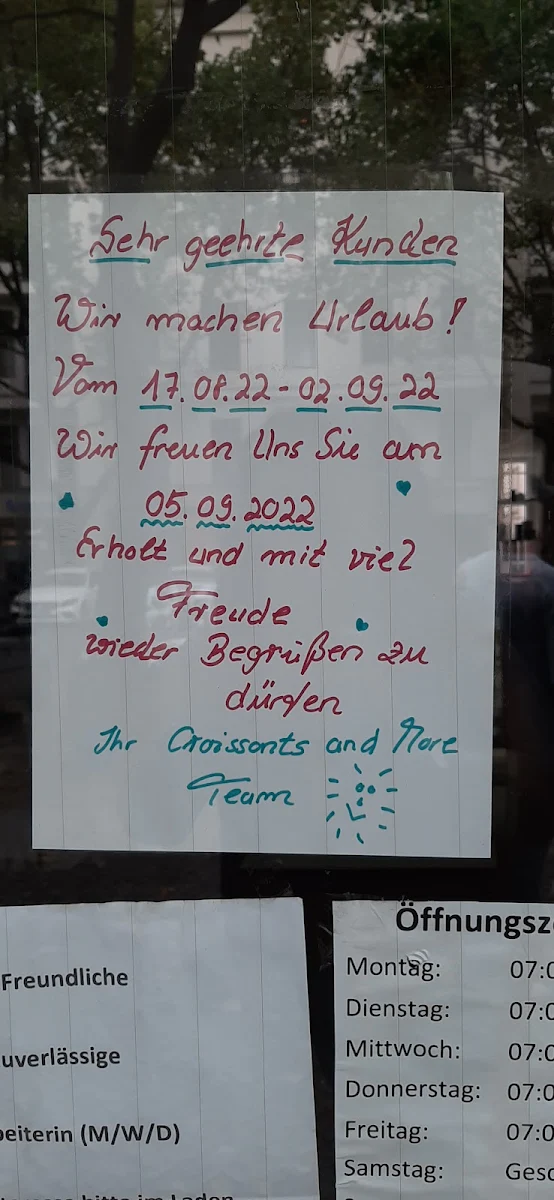 Sehr geehrte Kunden
Wir machen Urlaub!
Vom 17.08.22 - 02.09.22
Wir freuen Uns Sie am
05.09.2022
Erholt und mit viel
Freude
wieder Begrüßen zu
dürfen
Ihr Croissants and More
Team
Freundliche
uverlässige
beiterin (M/W/D)
bitte im Laden
Öffnungsz
Montag: 07:0
Dienstag: 07:0
Mittwoch: 07:0
Donnerstag: 07:0
Freitag: 07:0
Samstag: Gesc